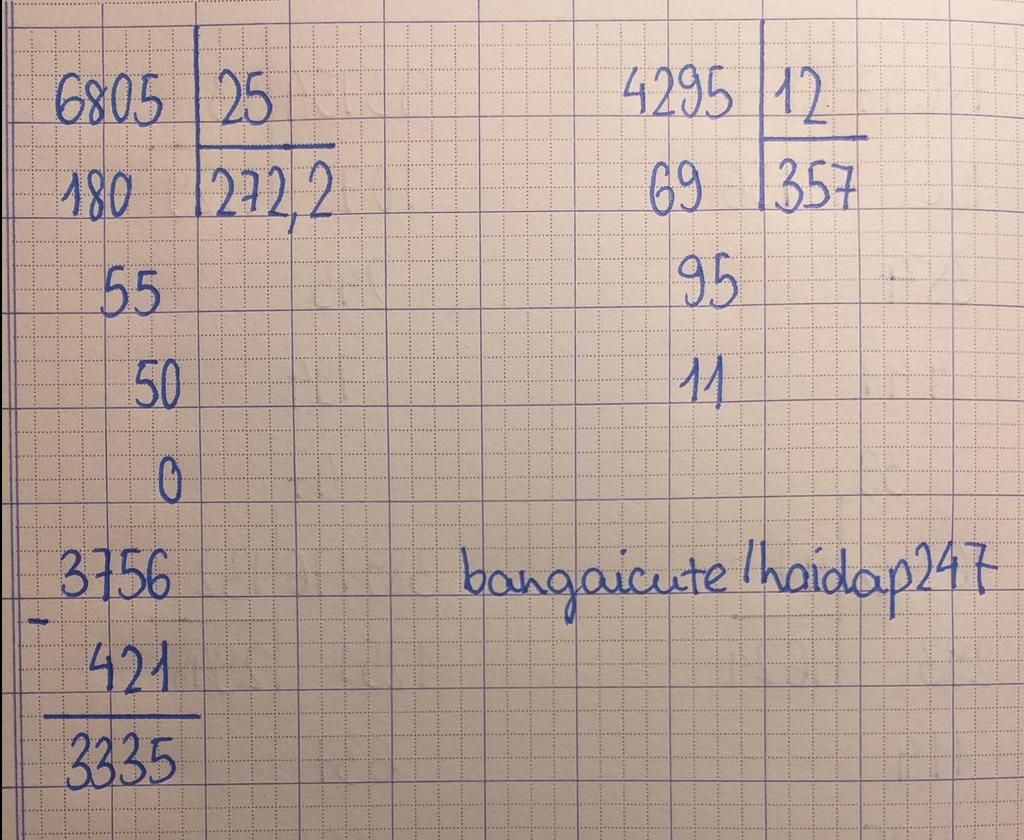 6805 25
180 272,2
55
50
0
4295 12
69 357
95
11
3756
-
421
3335
bangaicute/hoidap247